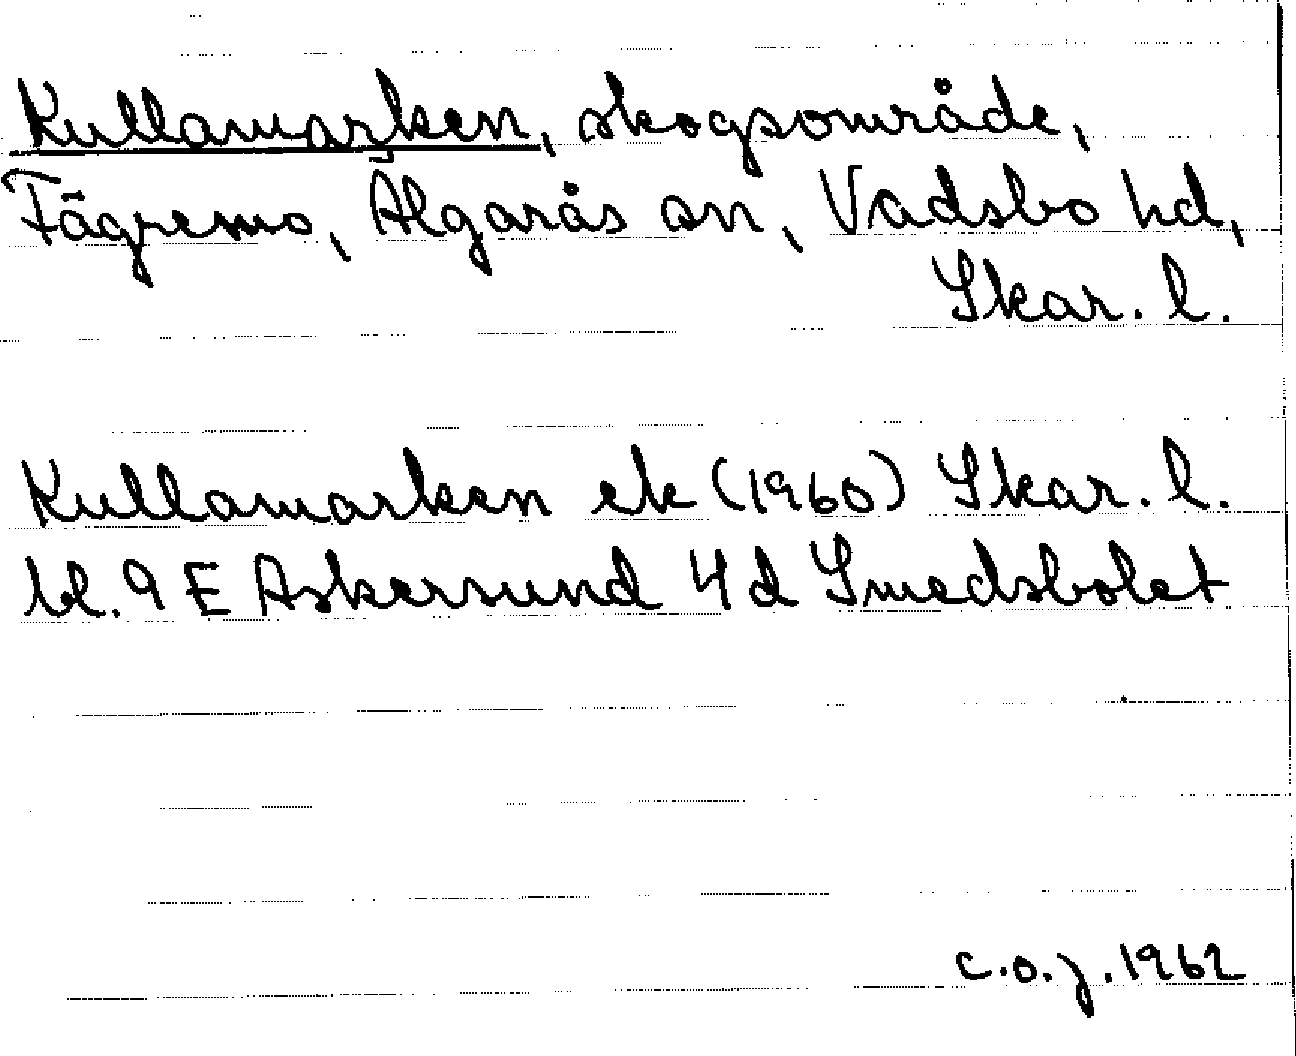 Kullamarken, skogsområde,
Fägremo, Älgarås sn, Vadsbo hd,
Skar. l.
Kullamarken ek (1960) Skar. l.
bl. 9 E Askersund 4 d Smedsbolet
C.O.J. 1962